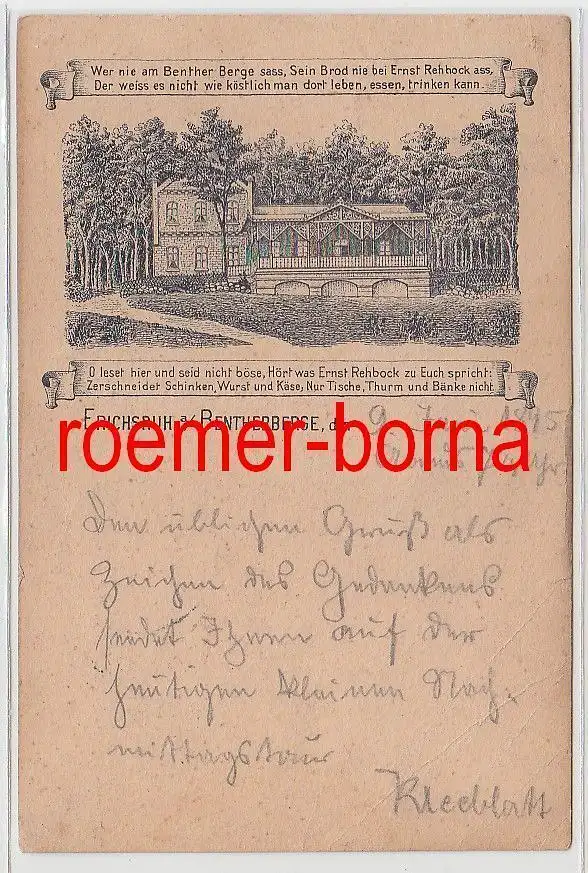 Wer nie am Benther Berge sass, Sein Brod nie bei Ernst Rehbock ass,
Der weiss es nicht wie köstlich man dort leben, essen, trinken kann.
O leset hier und seid nicht böse, Hört was Ernst Rehbock zu Euch spricht:
Zerschneidet Schinken, Wurst und Käse, Nur Tische, Thurm und Bänke nicht.
ERICHSRUH a/ BENTHERBERGE, d. 9. 1915
roemer-borna
Abends Uhr
Den üblichen Gruß als
Zeichen des Gedenkens
sendet Ihnen auf der
heutigen kleinen Nach-
mittagstour
Kleeblatt